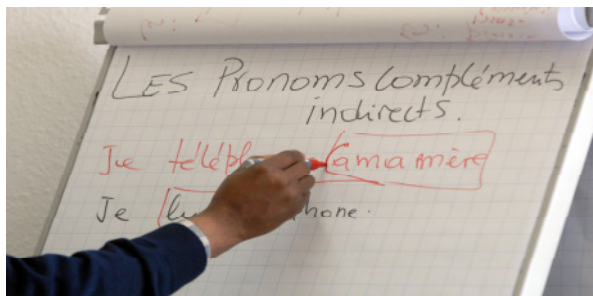 LES Pronoms compléments
indirects.
Je téléph à ma mère
Je lu hone.